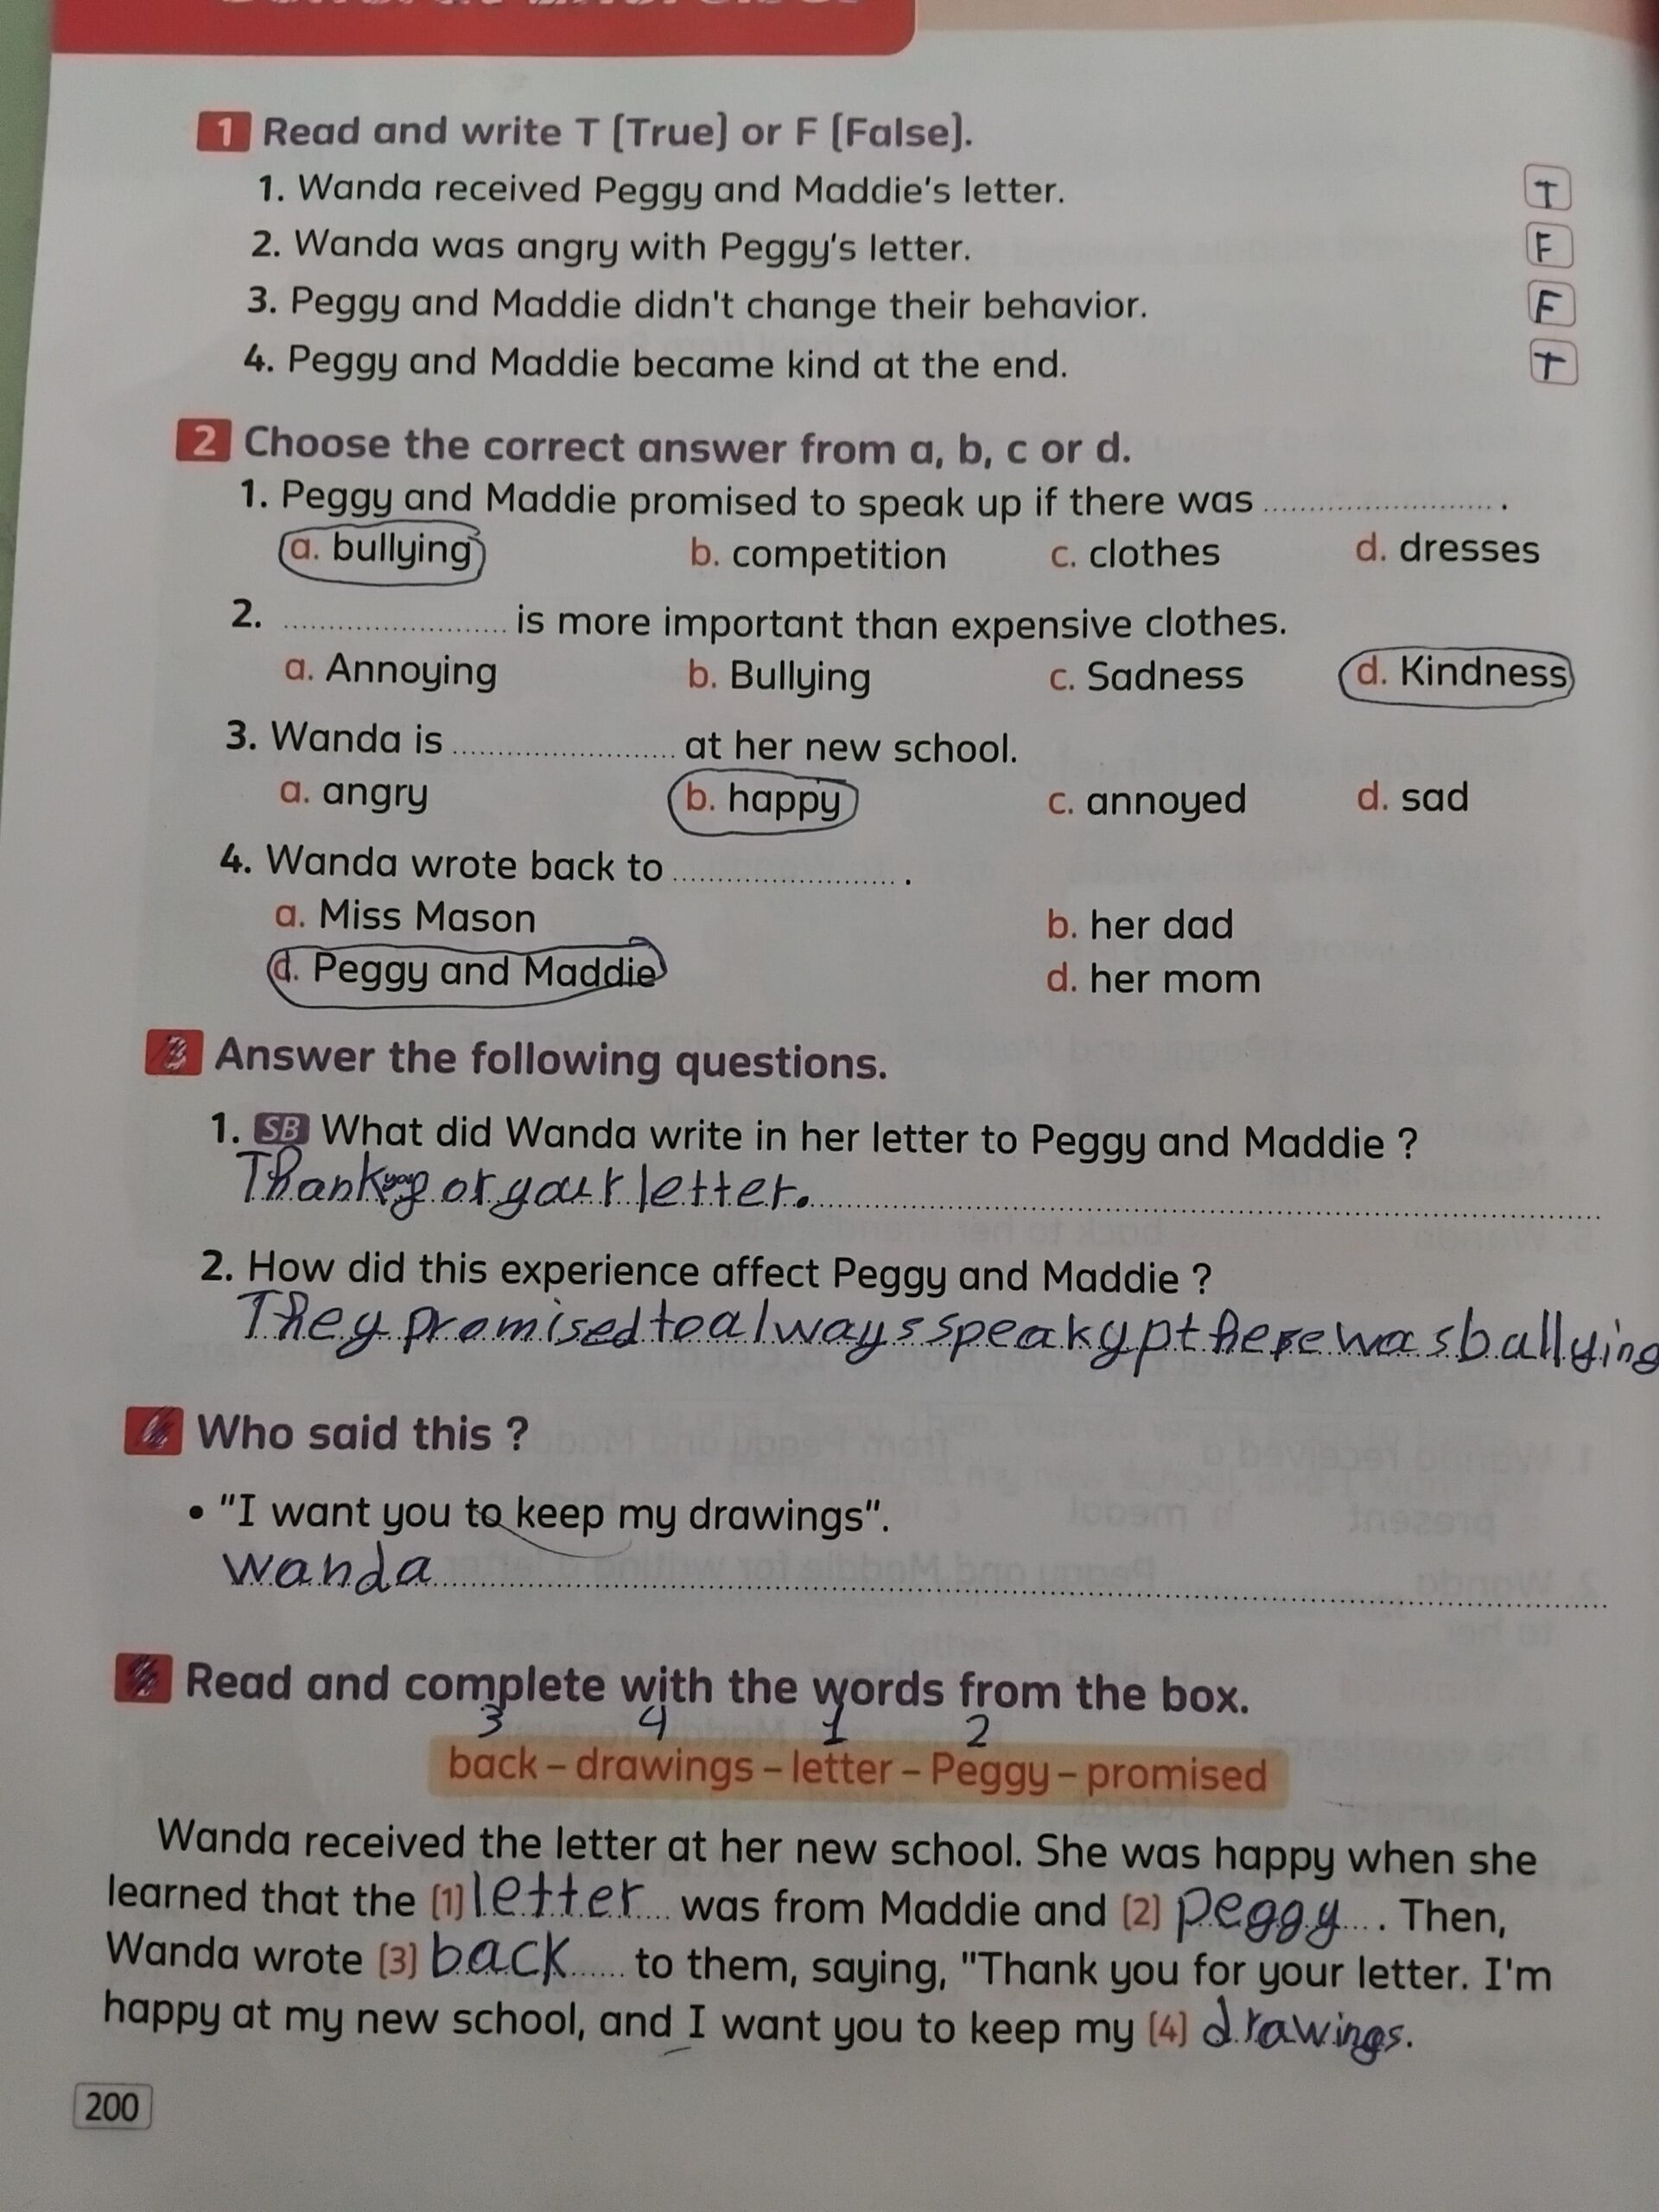 1 Read and write T (True) or F (False).
1. Wanda received Peggy and Maddie's letter. T
2. Wanda was angry with Peggy's letter. F
3. Peggy and Maddie didn't change their behavior. F
4. Peggy and Maddie became kind at the end. T
2 Choose the correct answer from a, b, c or d.
1. Peggy and Maddie promised to speak up if there was .................... .
a. bullying b. competition c. clothes d. dresses
2. .................... is more important than expensive clothes.
a. Annoying b. Bullying c. Sadness d. Kindness
3. Wanda is .................... at her new school.
a. angry b. happy c. annoyed d. sad
4. Wanda wrote back to .................... .
a. Miss Mason b. her dad
d. Peggy and Maddie d. her mom
3 Answer the following questions.
1. SB What did Wanda write in her letter to Peggy and Maddie ?
Thank your letter.
2. How did this experience affect Peggy and Maddie ?
They promised to always speak yp there was ballying
Who said this ?
• "I want you to keep my drawings".
wanda
Read and complete with the words from the box.
3 4 1 2
back – drawings – letter – Peggy – promised
Wanda received the letter at her new school. She was happy when she
learned that the (1) letter was from Maddie and (2) peggy . Then,
Wanda wrote (3) back to them, saying, "Thank you for your letter. I'm
happy at my new school, and I want you to keep my (4) drawings.
200